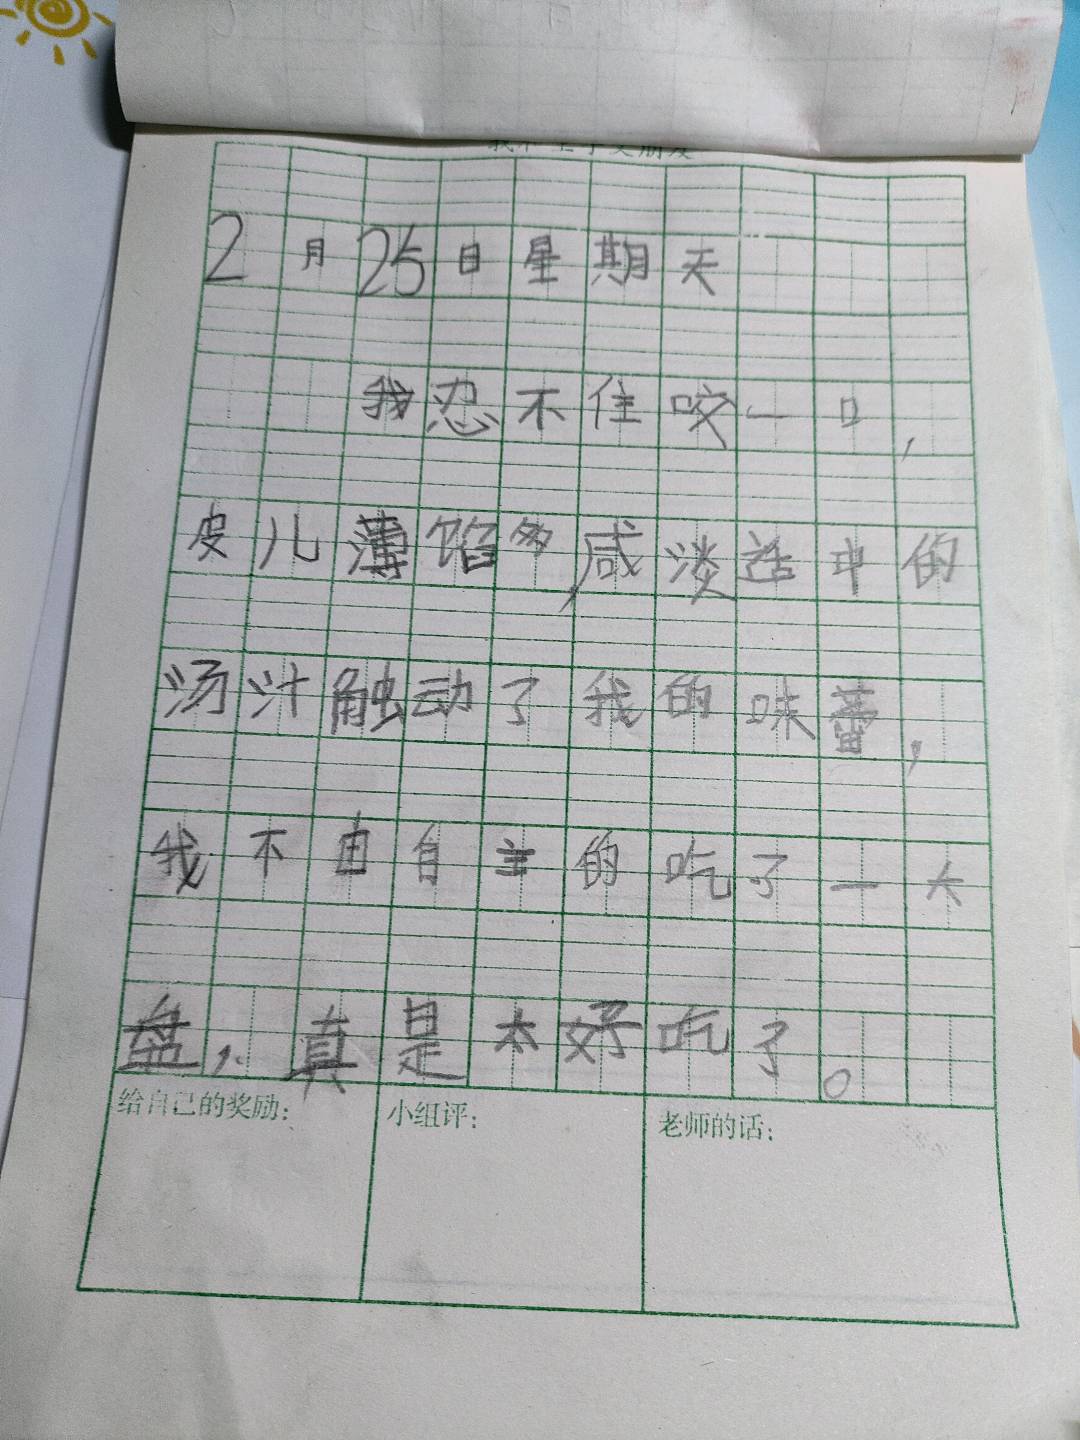 2月25日星期天
我忍不住咬一口,
皮儿薄馅多,咸淡适中的
汤汁触动了我的味蕾,
我不由自主的吃了一大
盘,真是太好吃了。
给自己的奖励:
小组评:
老师的话: